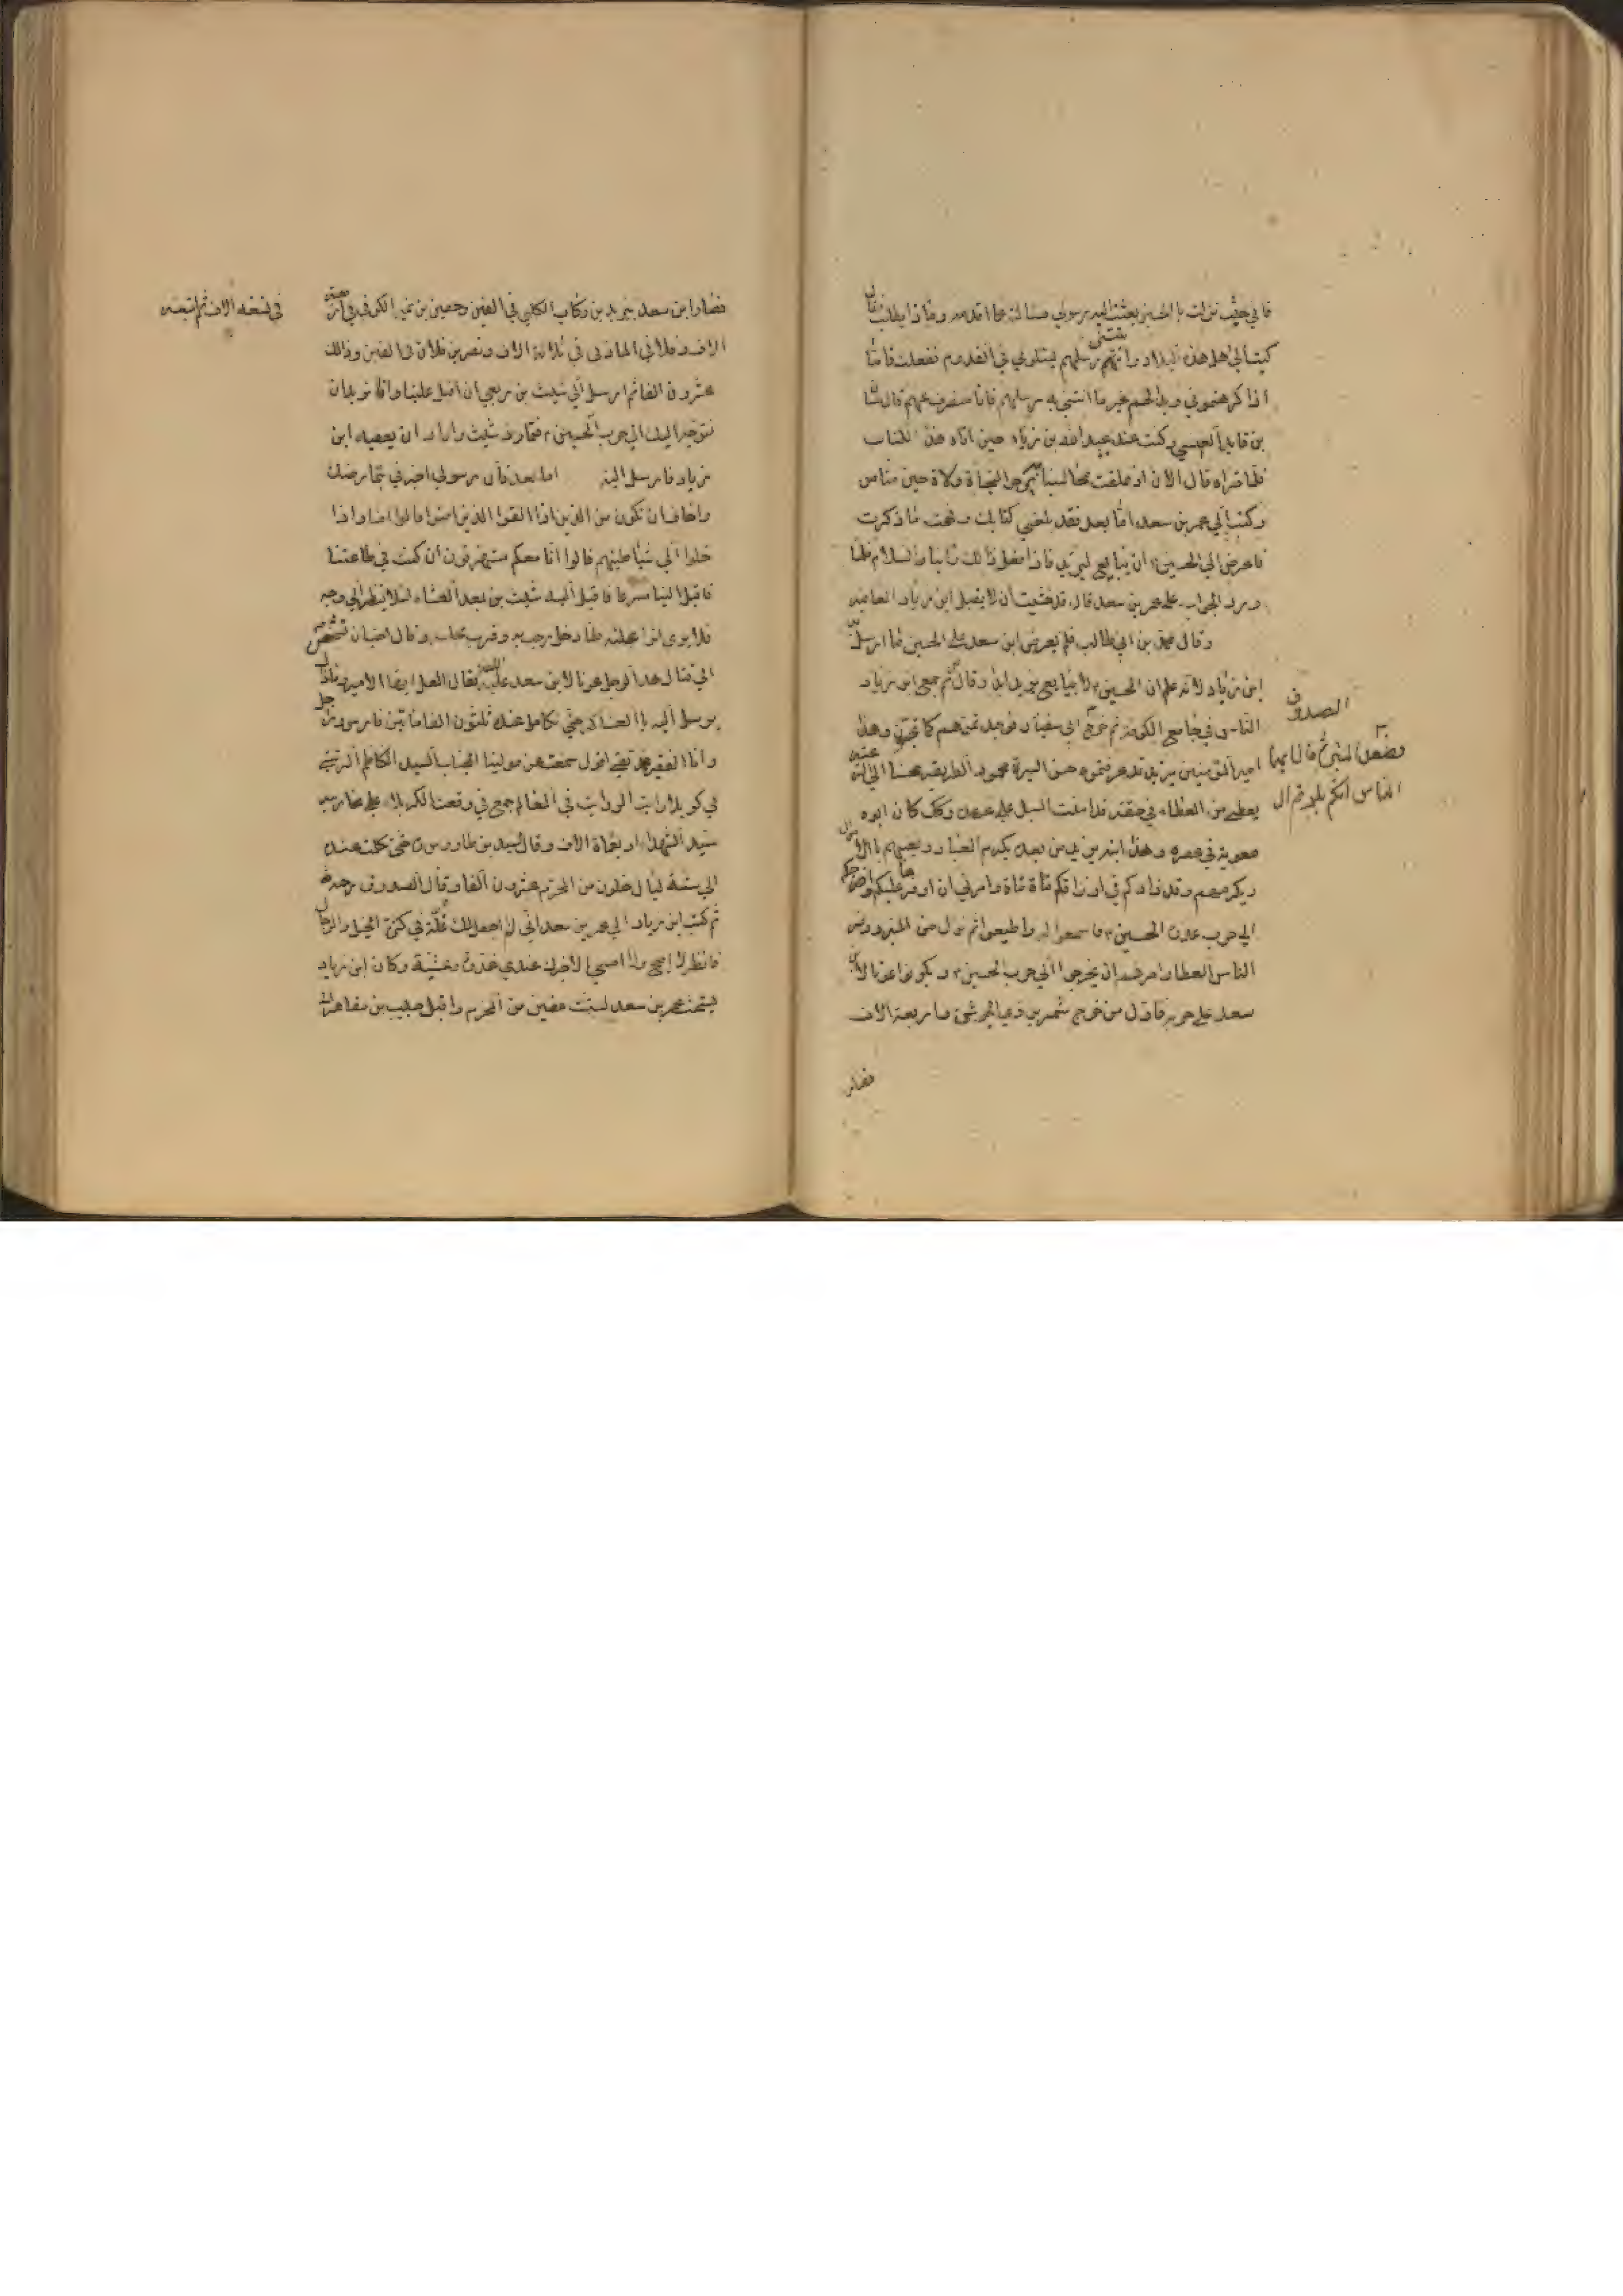 فاني حيث نزلت بالحسين بعثت اليه رسولي مسالته عما اقدمه وماذا يطلب فقال
كتب الي اهل هذه البلاد واتتني رسلهم يسئلوني في القدوم ففعلت فاما
اذا كرهتموني وبدالهم غير ما اتتني به رسلهم فانا منصرف عنهم قال حسان
بن قايد العبسي وكنت عند عبيد الله بن زياد حين اتاه هذا الكتاب
فلما قراه قال الان اذ علقت مخالبنا به يرجوا النجاة ولاة حين مناص
وكتب الي عمر بن سعد اما بعد فقد بلغني كتابك وفهمت ما ذكرت
فاعرض الي الحسين ان يبايع ليزيد فاذا فعل ذالك راينا والسلام فلما
ورد الجواب علي عمر بن سعد قال قد خشيت ان لا يقبل ابن زياد العافية
وقال محمد بن ابي طالب فلم يعرض ابن سعد علي الحسين ما ارسل به
ابن زياد لانه علم ان الحسين لا يبايع يزيد ابدا وقال ثم جمع ابن زياد
الناس في جامع الكوفة ثم خرج ابي سفيان فوجد تموهم كما تحبون وهذا
امير المؤمنين يزيد قد عرفتموه حسن السيرة محمود الطريقة محسنا الي الرعية
يعطي من العطاء في حقه قد امنت السبل علي عهده وكك كان ابوه
معوية في عصره وهذا ابنه يزيد من بعده يكرم العباد ويغنيهم بالاموال
ويكرمهم وقد زادكم في ارزاقكم مأة مأة وامرني ان اوفرها عليكم واخرجكم
الي حرب عدوه الحسين فاسمعوا له واطيعوا ثم نزل من المنبر ووفر
الناس العطا وامرهم ان يخرجوا الي حرب الحسين ويكونوا عونا لابن
سعد علي حربه فاول من خرج شمر بن ذي الجوشن في اربعة الاف
فصار
الصدوق
فصعد المنبر ثم قال ايها
الناس انكم بلوتم ال
فصار ابن سعد يزيد بن ركاب الكلبي في الفين وحصين بن نمير الكوفي في اربعة
الاف وفلاني المازني في ثلاثة الاف ونصر بن فلان في الفين وذالك
عشرون الفا ثم ارسل الي شبث بن ربعي ان اقبل علينا وانا نريد ان
نتوجه اليك الي حرب الحسين فتمارض شبث واراد ان يعفيه ابن
زياد فارسل اليه اما بعد فان رسولي اخبرني بتمارضك
واخاف ان تكون من الذين اذا القوا الذين امنوا قالوا امنا واذا
خلوا الي شياطينهم قالوا انا معكم مستهزؤن ان كنت في طاعتنا
فاقبل الينا مسرعا فاقبل اليه شبث بن بعد العشاء لئلا ينظر الي وجهه
فلا يري اثر العلة فلما دخل رحب به وقرب مجلسه وقال احب ان تشخص
الي قتال هذا الرجل عونا لابن سعد عليه اللعنة فقال افعل ايها الامير فما زال
يرسل اليه بالعساكر حتي تكامل عنده ثلثون الفا ما بين فارس وراجل
وانا الفقير محمد تقي اقول سمعت عن مولينا الجناب السيد الكاظم الرشتي
في كربلا رايت الروايت في المعالم جمع في وقعت الكربلا علي محاربه
سيد الشهداء اربعماة الاف وقال السيد بن طاووس ره حتي تكملت عنده
الي ستة ليال خلون من المحرم عشرون الفا وقال الصدوق رحمه
ثم كتب ابن زياد الي عمر بن سعد اني لم اجعل لك علة في كثرة الخيل والرجال
فانظر لا اصبح ولا امسي الا خبرك عندي غدوة وعشية وكان ابن زياد
يستحث عمر بن سعد لستت مضين من المحرم واقبل حبيب بن مظاهر
في تسعه الاف ثم اتبعه